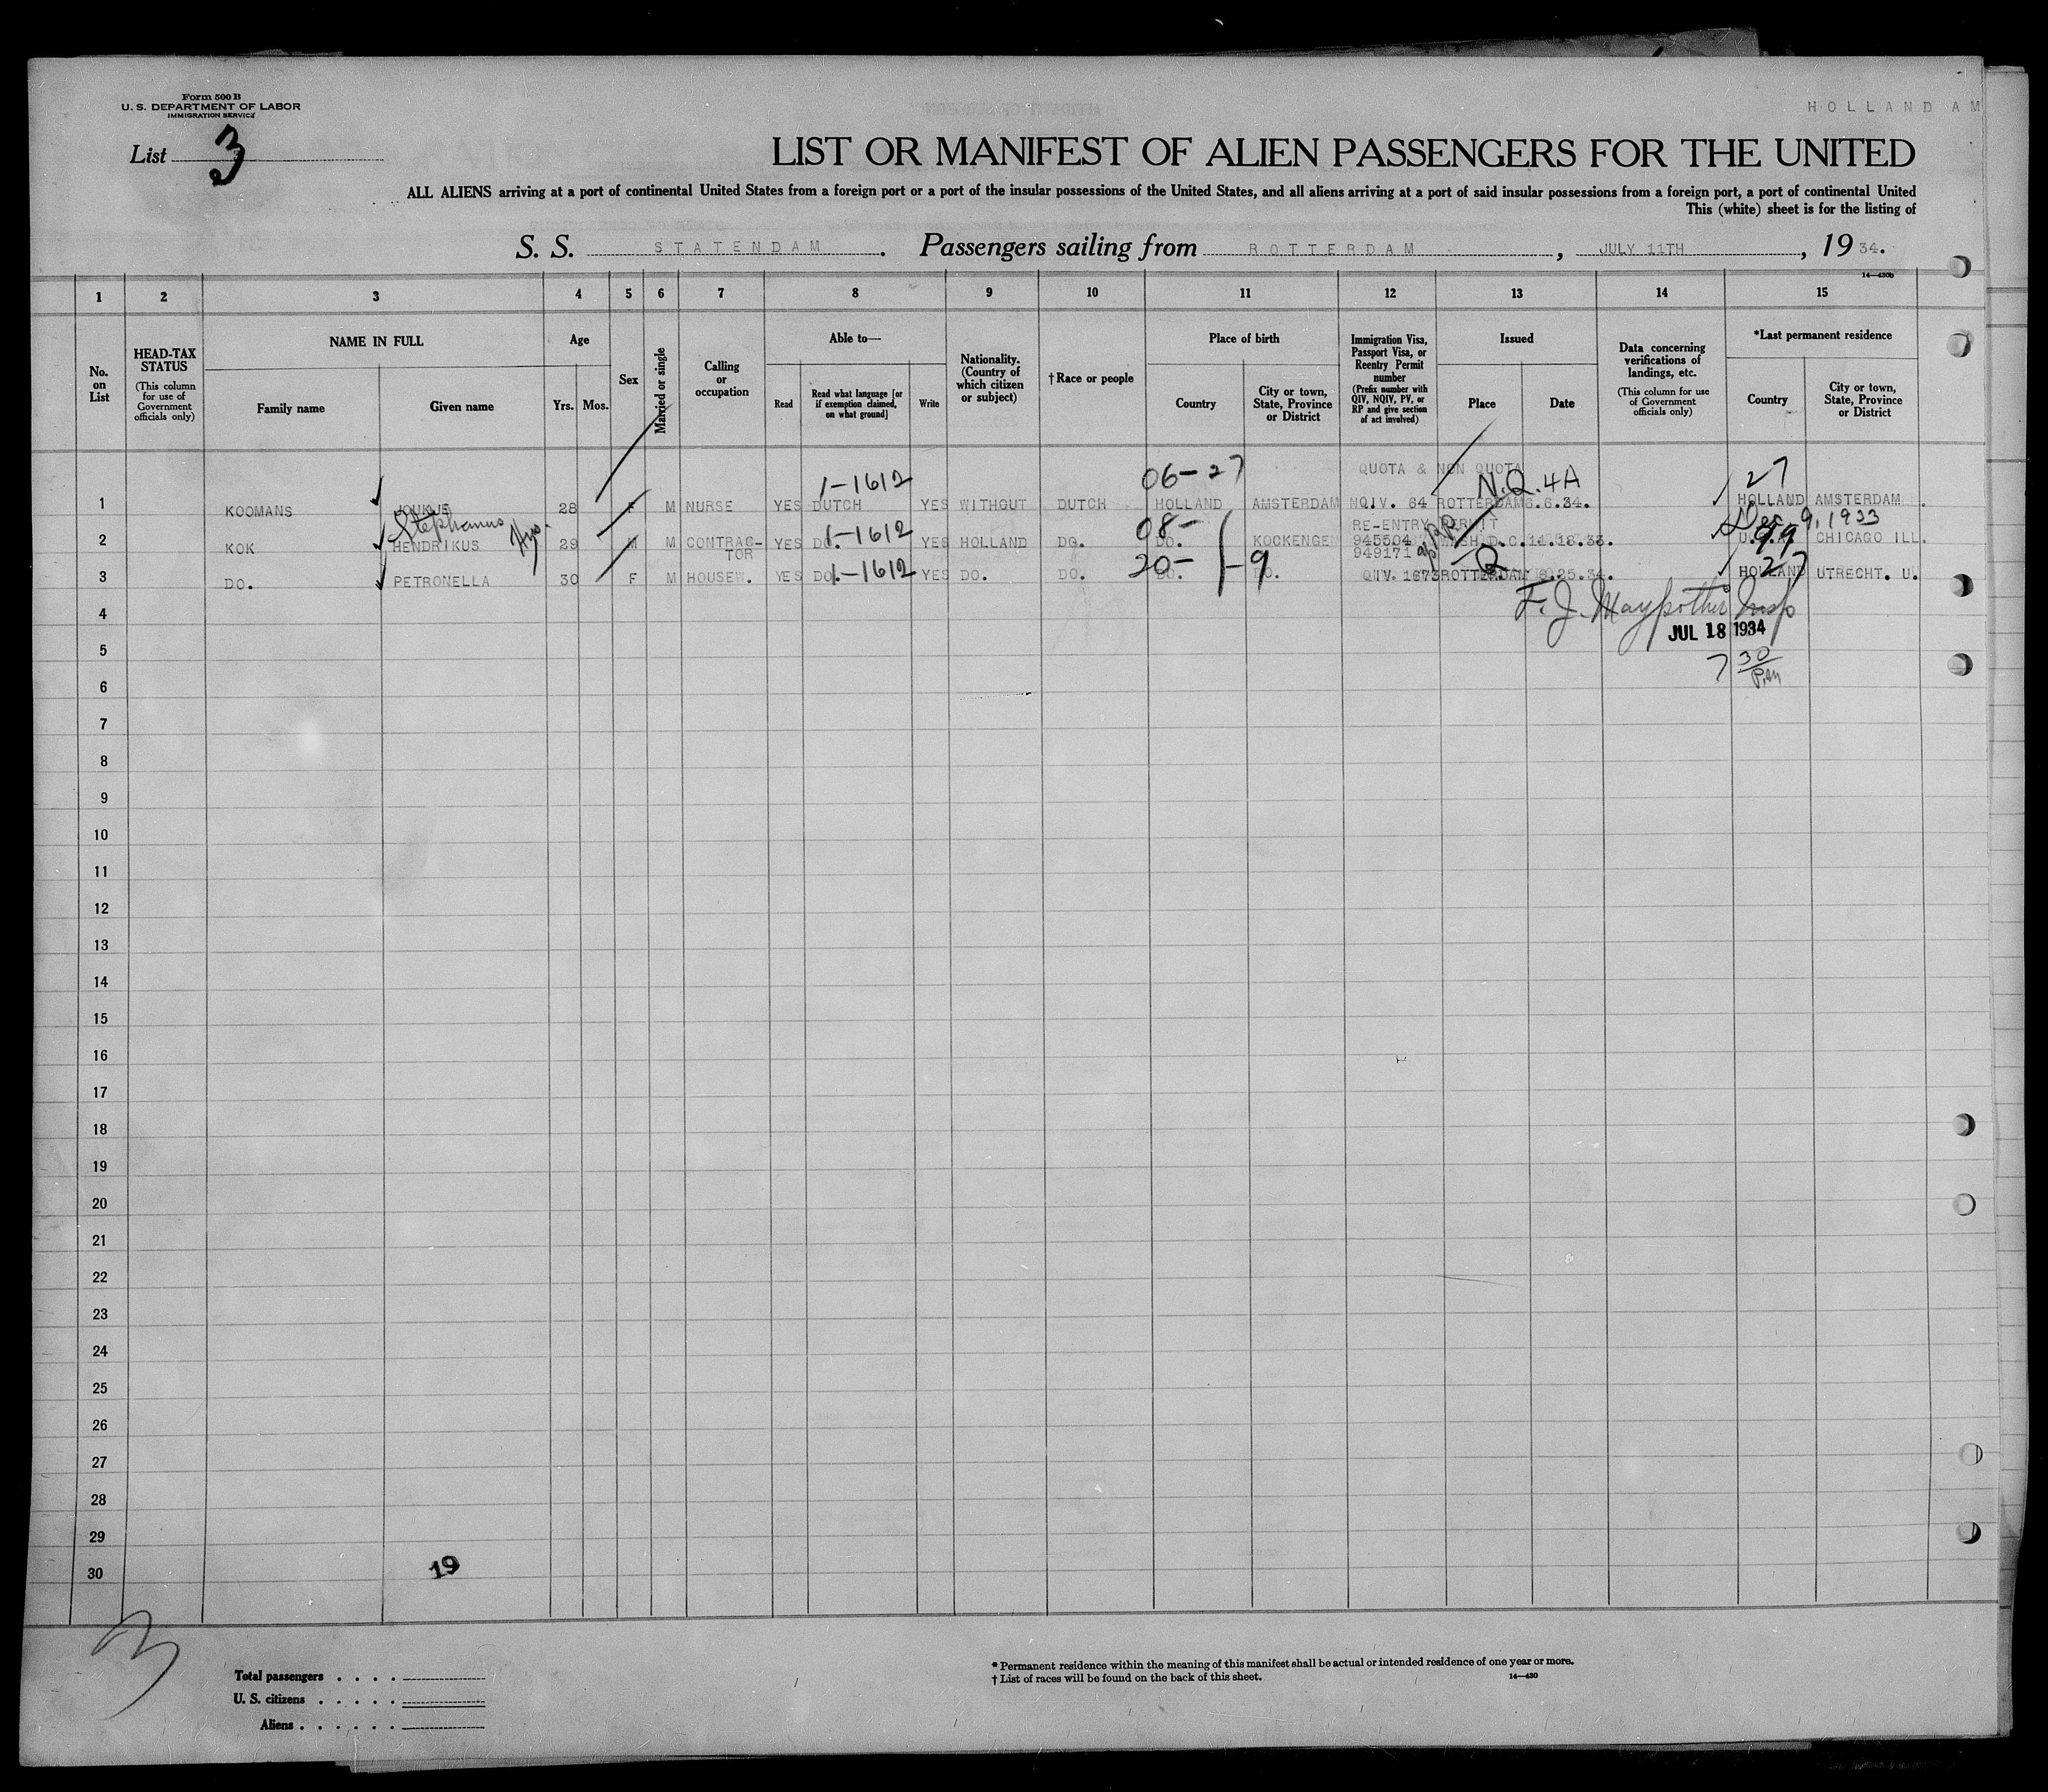 Form 500 B
U. S. DEPARTMENT OF LABOR
IMMIGRATION SERVICE
HOLLAND AM
List 3
LIST OR MANIFEST OF ALIEN PASSENGERS FOR THE UNITED
ALL ALIENS arriving at a port of continental United States from a foreign port or a port of the insular possessions of the United States, and all aliens arriving at a port of said insular possessions from a foreign port, a port of continental United
This (white) sheet is for the listing of
S. S. STATENDAM. Passengers sailing from ROTTERDAM, JULY 11TH, 1934.
14—430b
1 2 3 4 5 6 7 8 9 10 11 12 13 14 15
No. on List
HEAD-TAX STATUS (This column for use of Government officials only)
NAME IN FULL
Family name
Given name
Age
Yrs. Mos.
Sex
Married or single
Calling or occupation
Able to—
Read
Read what language [or if exemption claimed, on what ground]
Write
Nationality. (Country of which citizen or subject)
† Race or people
Place of birth
Country
City or town, State, Province or District
Immigration Visa, Passport Visa, or Reentry Permit number (Prefix number with QIV, NQIV, PV, or RP and give section of act involved)
Issued
Place
Date
Data concerning verifications of landings, etc. (This column for use of Government officials only)
*Last permanent residence
Country
City or town, State, Province or District
1-1612 06-27 QUOTA & NON QUOTA N.Q. 4A 27
1 KOOMANS 28 F M NURSE YES DUTCH YES WITHOUT DUTCH HOLLAND AMSTERDAM NQIV. 64 ROTTERDAM 6.6.34. HOLLAND AMSTERDAM.
Stephanus 1-1612 08- RE-ENTRY PERMIT Dec. 9, 1933
2 KOK HENDRIKUS 29 M M CONTRACTOR YES DO. YES HOLLAND DO. DO. KOCKENGEN 945504 WASH.D.C. 11.18.33. 99 CHICAGO ILL.
949171
1-1612 20- -9 Q 27
3 DO. PETRONELLA 30 F M HOUSEW. YES DO. YES DO. DO. DO. DO. QIV. 1673 ROTTERDAM 6.25.34. HOLLAND UTRECHT. U.
4
JUL 18 1934
5
7 30 P.M
6
7
8
9
10
11
12
13
14
15
16
17
18
19
20
21
22
23
24
25
26
27
28
29
30
19
3
Total passengers . . . .
U. S. citizens . . . . .
Aliens . . . . . .
* Permanent residence within the meaning of this manifest shall be actual or intended residence of one year or more.
† List of races will be found on the back of this sheet.
14—430